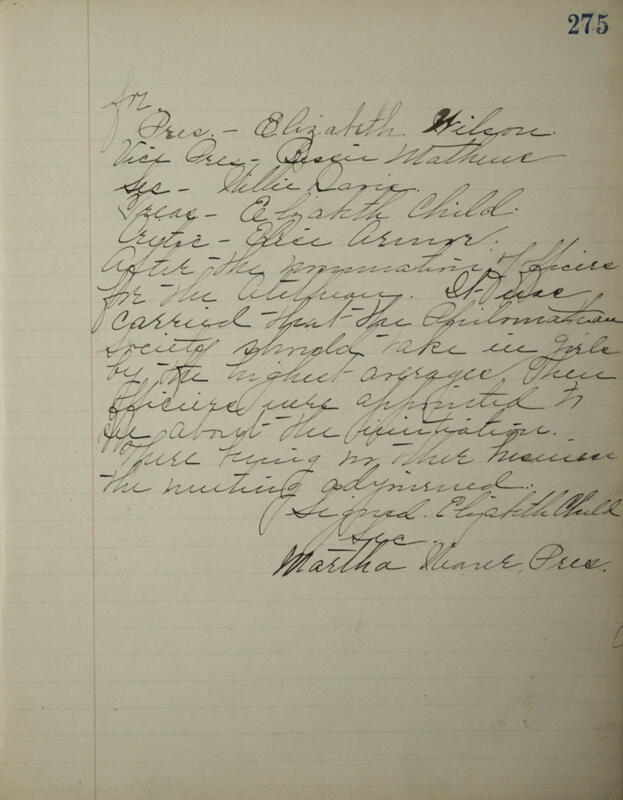 275
for
Pres. - Elizabeth Wilson.
Vice Pres - Bessie Mathews
Sec - Willie Davis.
Treas - Elizabeth Child.
Critic - Elise Armor.
After the nomination of officers
for the Atelhean. It was
carried that the Philomathean
society should take in girls
by the highest averages. Then
officiers were appointed to
see about the invitation.
There being no other business
the meeting adjourned.
Signed. Elizabeth Child
Sec.
Martha Pres.